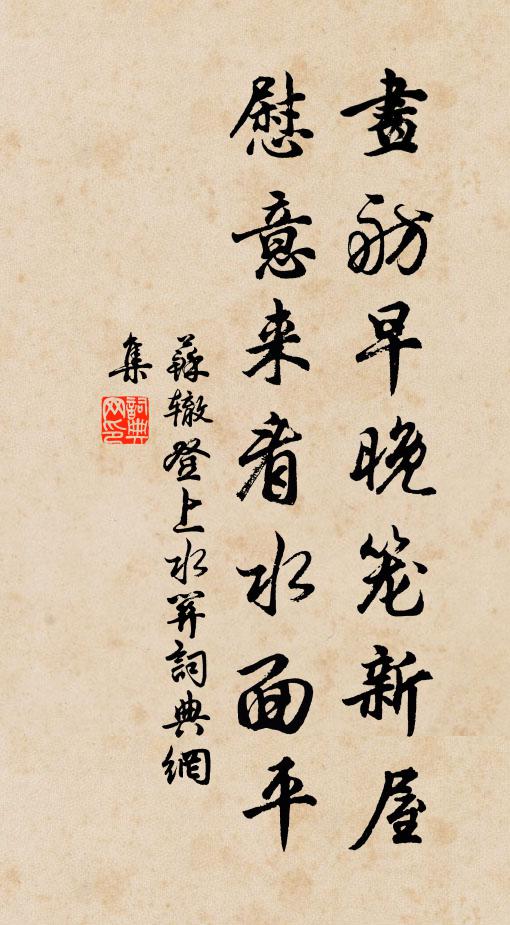 畫舫早晚笼新屋
慰意来看水面平
蘇辙登上水關詞典網
集
詞典网印